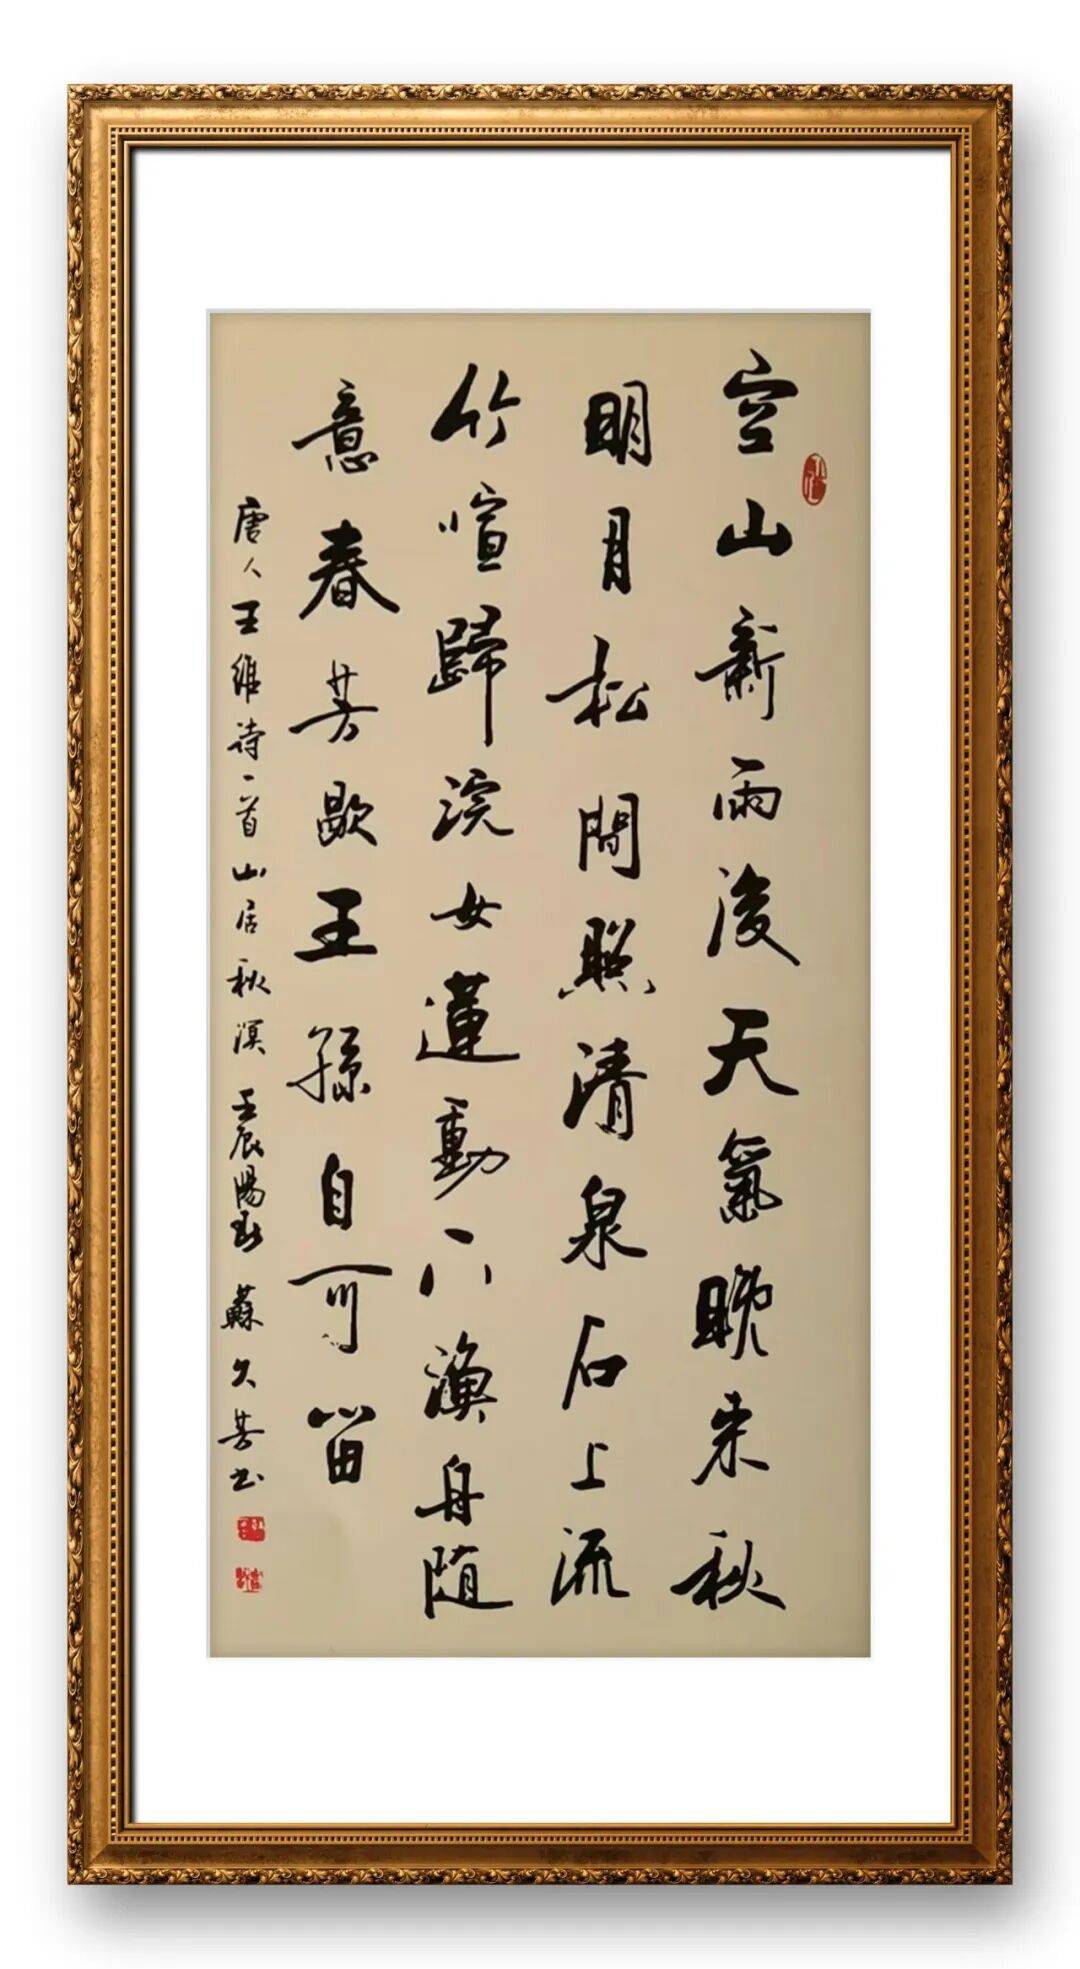 空山新雨後天氣晚來秋
明月松間照清泉石上流
竹喧歸浣女蓮動下漁舟随
意春芳歇王孫自可留
唐人王維诗一首山居秋溟壬辰陽春蘇久芳书